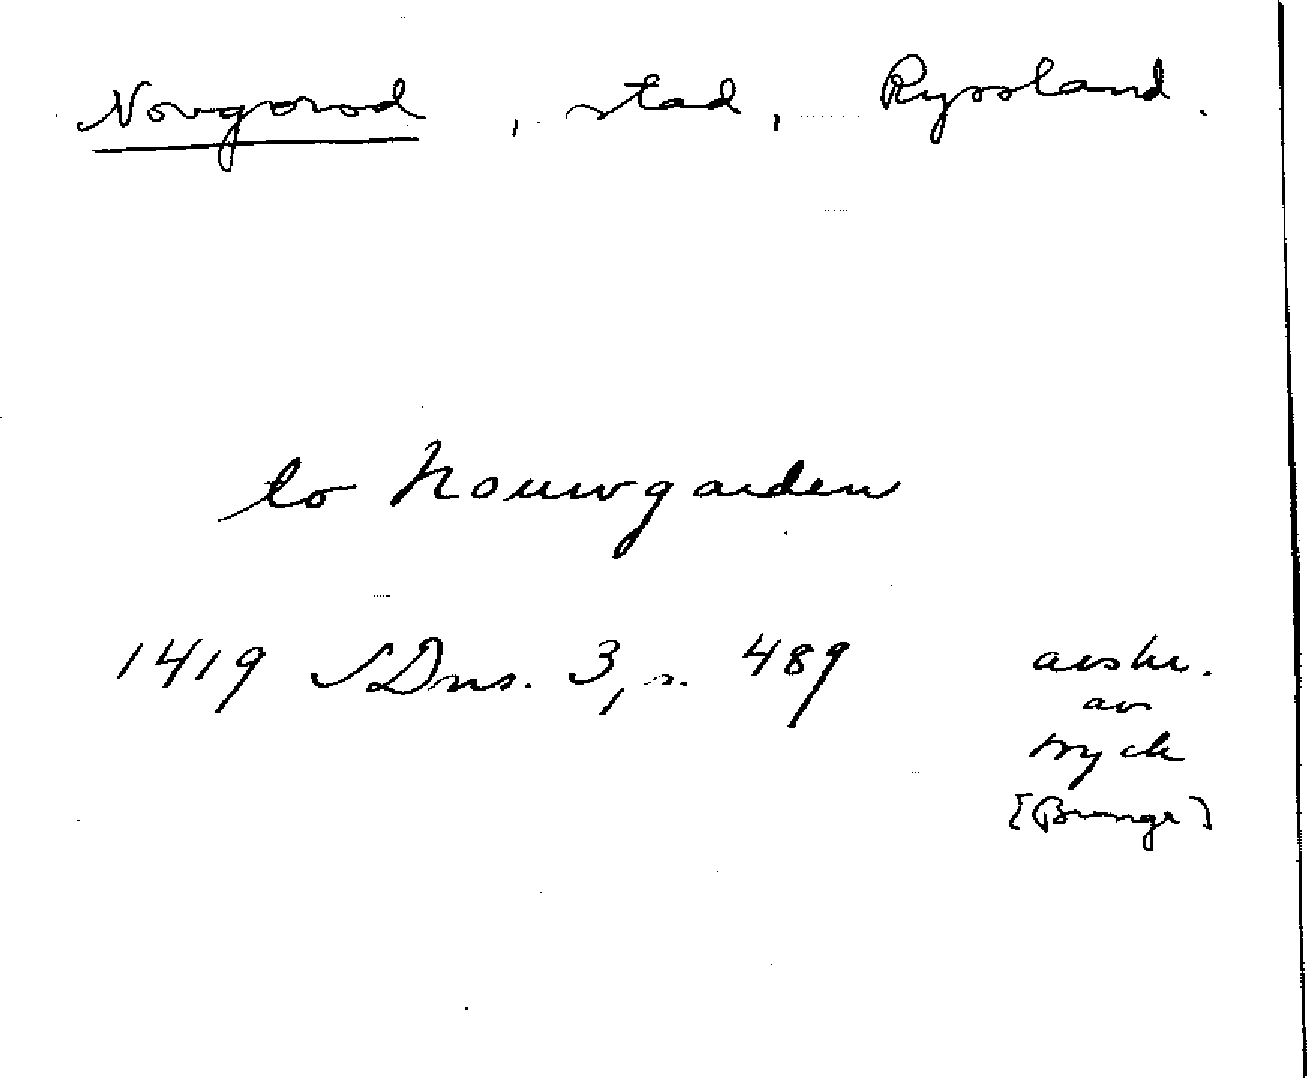 Novgorod, stad, Ryssland.
to Nouwgarden
1419 SDns. 3, s. 489
avskr.
av
tryck
[Bunge]